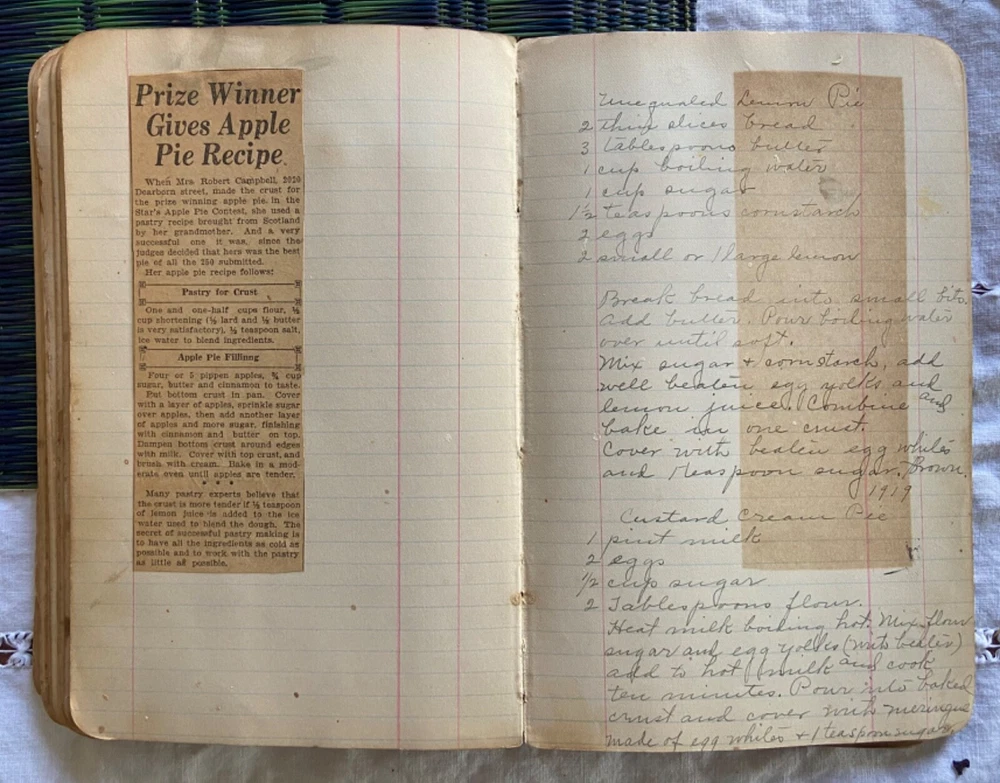 Prize Winner
Gives Apple
Pie Recipe
When Mrs. Robert Campbell, 2020
Dearborn street, made the crust for
the prize winning apple pie, in the
Star's Apple Pie Contest, she used a
pastry recipe brought from Scotland
by her grandmother. And a very
successful one it was, since the
judges decided that hers was the best
pie of all the 250 submitted.
Her apple pie recipe follows:
Pastry for Crust
One and one-half cups flour, ½
cup shortening (½ lard and ½ butter
is very satisfactory), ½ teaspoon salt,
ice water to blend ingredients.
Apple Pie Filling
Four or 5 pippen apples, ¾ cup
sugar, butter and cinnamon to taste.
Put bottom crust in pan. Cover
with a layer of apples, sprinkle sugar
over apples, then add another layer
of apples and more sugar, finishing
with cinnamon and butter on top.
Dampen bottom crust around edges
with milk. Cover with top crust, and
brush with cream. Bake in a mod-
erate oven until apples are tender.
* * *
Many pastry experts believe that
the crust is more tender if ½ teaspoon
of lemon juice is added to the ice
water used to blend the dough. The
secret of successful pastry making is
to have all the ingredients as cold as
possible and to work with the pastry
as little as possible.
Unequaled Lemon Pie
2 thin slices bread
3 tablespoons butter
1 cup boiling water
1 cup sugar
1½ teaspoons cornstarch
2 eggs
2 small or 1 large lemon
Break bread into small bits.
Add butter. Pour boiling water
over until soft.
Mix sugar + cornstarch, add
well beaten egg yolks and
lemon juice. Combine and
bake in one crust.
Cover with beaten egg whites
and 1 teaspoon sugar. Brown.
1919
Custard Cream Pie
1 pint milk
2 eggs
1/2 cup sugar
2 Tablespoons flour.
Heat milk boiling hot. Mix flour
sugar and egg yolks (well beaten)
add to hot milk and cook
ten minutes. Pour into baked
crust and cover with meringue
made of egg whites + 1 teaspoon sugar